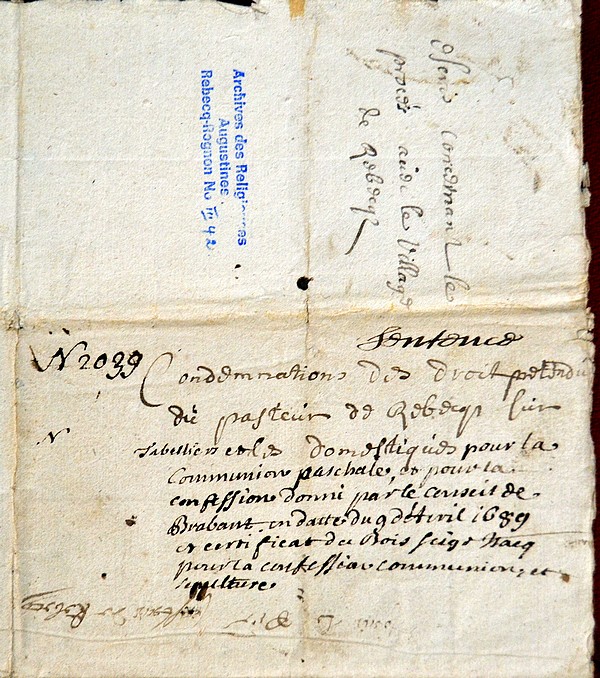 Archives des Religieuses
Augustines
Rebecq-Rognon No III 42
concernant le
procès avec le Village
de Rebecq
Sentence
N 2039
Condemnations des droit pretendu
du pasteur de Rebecq sur
N
et les domestiques pour la
Communion paschale, et pour la
confession donné par le conseil de
Brabant en datte du 9 d'Avril 1689
et certificat du Bois Seigr Isacq
pour la confession communion, et